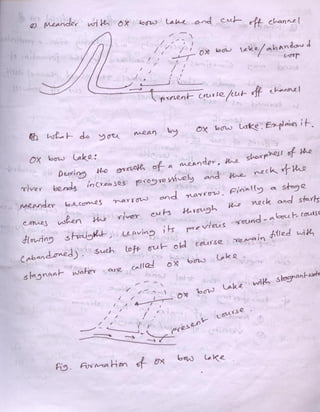 c) Meander with ox bow lake and cut off channel
ox bow lake/abandoned
loop
present course/cut off channel
What do you mean by ox bow lake. Explain it.
Ox bow Lake:
During the growth of a meander, the sharpness of the
river bends increases progressively and the neck of the
meander becomes narrow and narrow. Finially a stage
comes when the river cuts through the neck and starts
flowing straight, leaving its previous round-about course
(abandoned). Such left out old course remain filled with
stagnant water are called ox bow lake.
ox bow Lake with stagnant water
present course.
Fig. Formation of ox bow lake